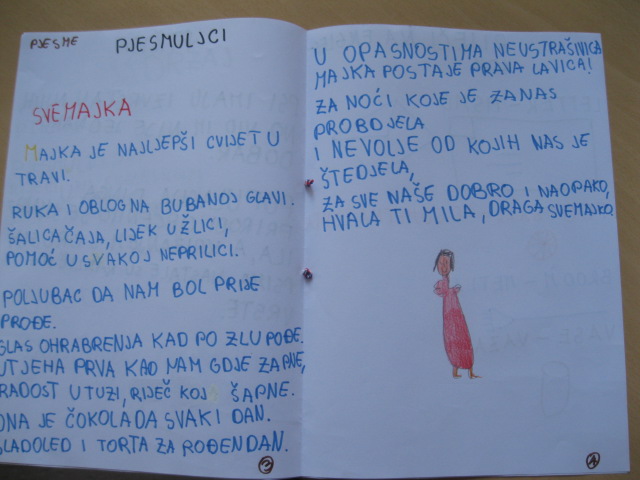 PJESME
PJESMULJCI
SVEMAJKA
MAJKA JE NAJLJEPŠI CVIJET U
TRAVI.
RUKA I OBLOG NA BUBANOJ GLAVI.
ŠALICA ČAJA, LIJEK U ŽLICI,
POMOĆ U SVAKOJ NEPRILICI.
POLJUBAC DA NAM BOL PRIJE
PROĐE.
GLAS OHRABRENJA KAD PO ZLU POĐE.
UTJEHA PRVA KAD NAM GDJE ZAPNE,
RADOST U TUZI, RIJEČ KOJA ŠAPNE.
ONA JE ČOKOLADA SVAKI DAN.
SLADOLED I TORTA ZA ROĐENDAN.
3
U OPASNOSTIMA NEUSTRAŠIVICA
MAJKA POSTAJE PRAVA LAVICA!
ZA NOĆI KOJE JE ZA NAS
PROBDJELA
I NEVOLJE OD KOJIH NAS JE
ŠTEDJELA,
ZA SVE NAŠE DOBRO I NAOPAKO,
HVALA TI MILA, DRAGA SVEMAJKO.
4